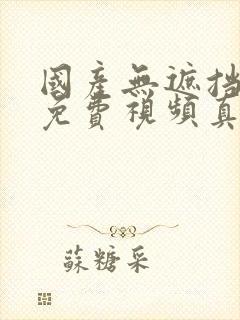 國產無遮挡
免費視頻真
蘇糖采